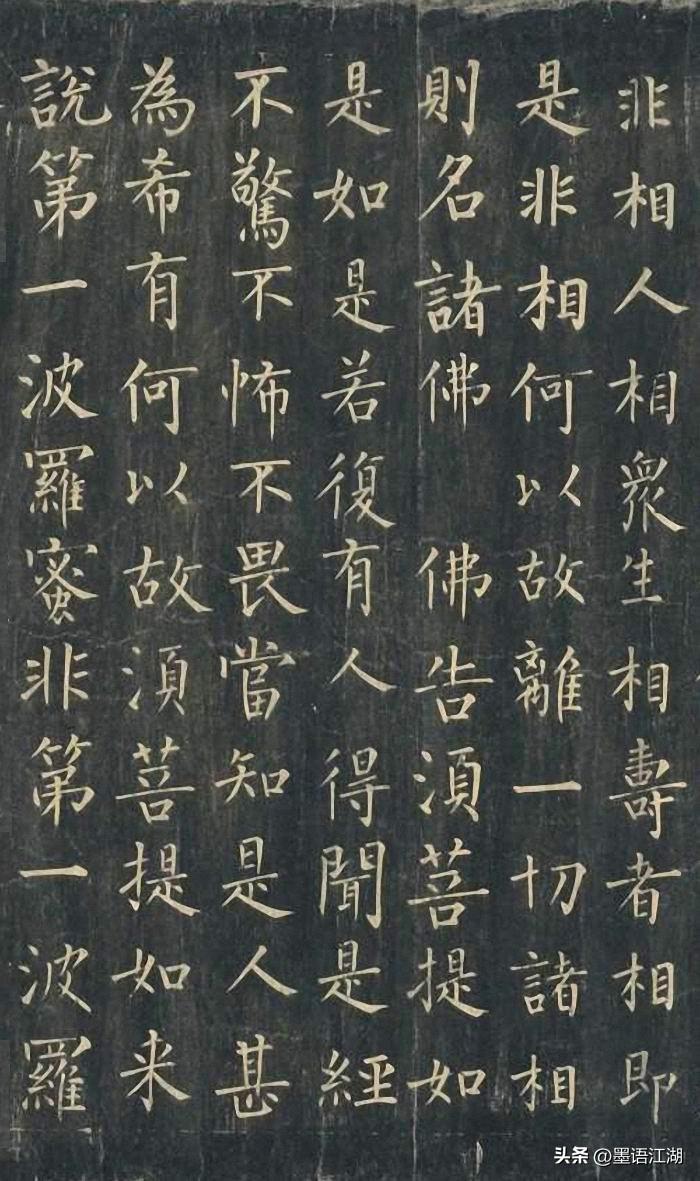 非相人相衆生相壽者相即
是非相何以故離一切諸相
則名諸佛 佛告湏菩提如
是如是若復有人得聞是經
不驚不怖不畏當知是人甚
為希有何以故湏菩提如来
說第一波羅蜜非第一波羅
头条 @墨语江湖